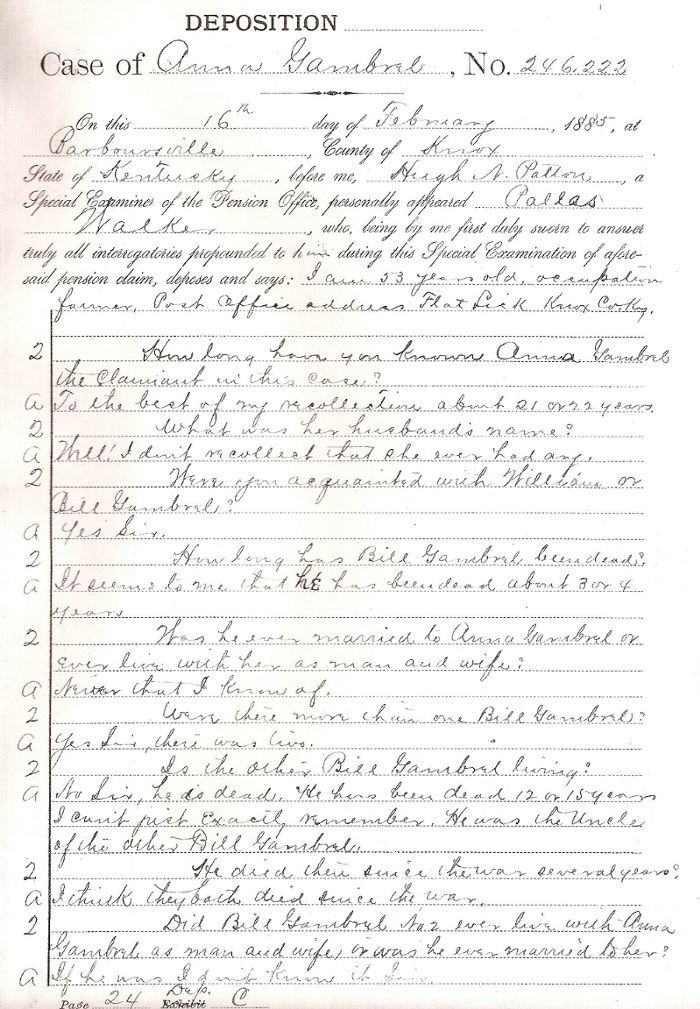 DEPOSITION
Case of Anna Gambrel, No. 246.222
On this 16th day of February, 1885, at
Barboursville, County of Knox
State of Kentucky, before me, Hugh N. Patton, a
Special Examiner of the Pension Office, personally appeared Pallas
Walker, who, being by me first duly sworn to answer
truly all interrogatories propounded to him during this Special Examination of afore-
said pension claim, deposes and says: I am 53 years old, occupation
farmer, Post Office address Flat Lick Knox Co. Ky.
2 How long have you known Anna Gambrel
the claimant in this case?
a To the best of my recollection about 21 or 22 years.
2 What was her husband's name?
a Well! I dn't recollect that she ever had any.
2 Were you acquainted with William or
Bill Gambrel?
a Yes Sir.
2 How long has Bill Gambrel been dead?
a It seems to me that he has been dead about 3 or 4
years
2 Was he ever married to Anna Gambrel or
ever live with her as man and wife?
a Never that I know of.
2 Were there more than one Bill Gambrel?
a Yes Sir, there was two.
2 Is the other Bill Gambrel living?
a No Sir, he is dead. He has been dead 12 or 15 years
I can't just exactly remember. He was the Uncle
of the other Bill Gambrel.
2 He died then since the war several years?
a I think they both died since the war.
2 Did Bill Gambrel No 2 ever live with Anna
Gambrel as man and wife, or was he ever married to her?
a If he was I dn't know it Sir.
Page 24 Dep. Exhibit C